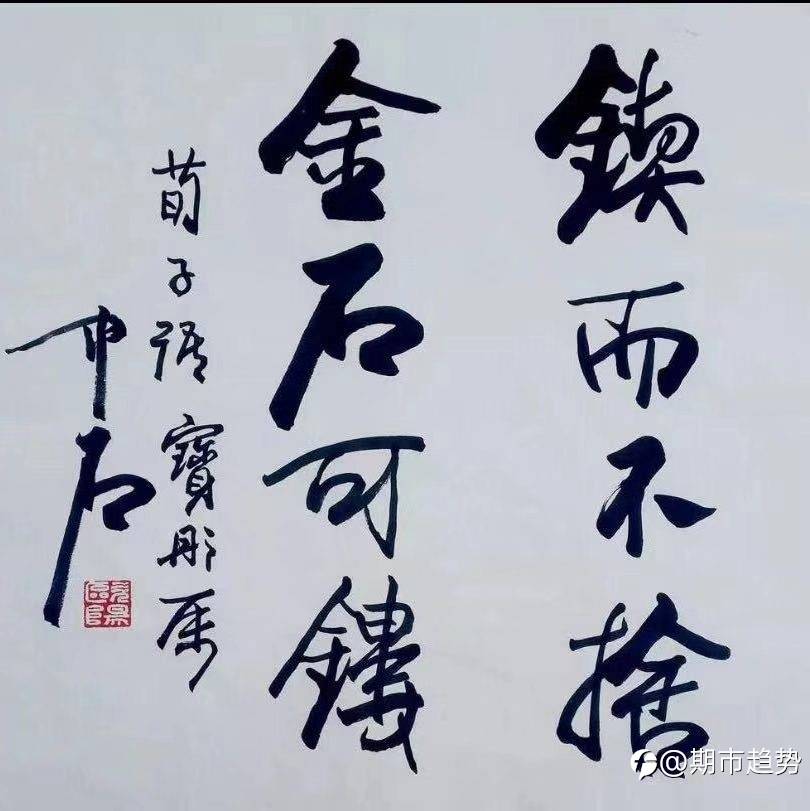 鍥而不捨
金石可鏤
荀子語 寶彤属
中石
@期市趋势